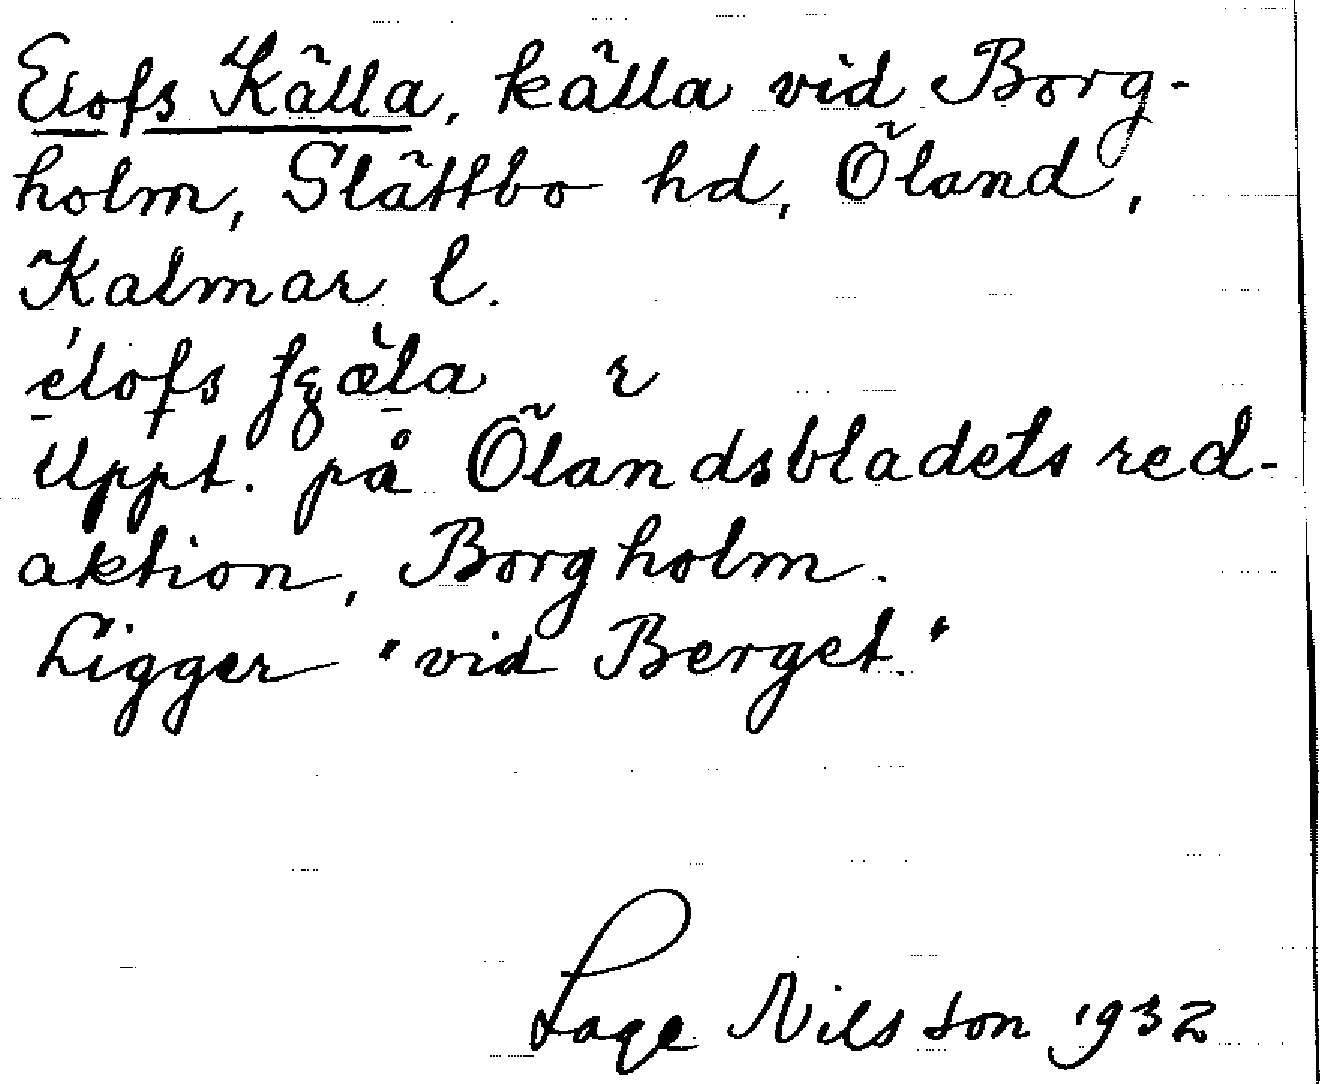 Elofs Källa, källa vid Borg-
holm, Slättbo hd, Öland,
Kalmar l.
r
Uppt. på Ölandsbladets red-
aktion, Borgholm.
Ligger "vid Berget."
Lage Nilsson 1932